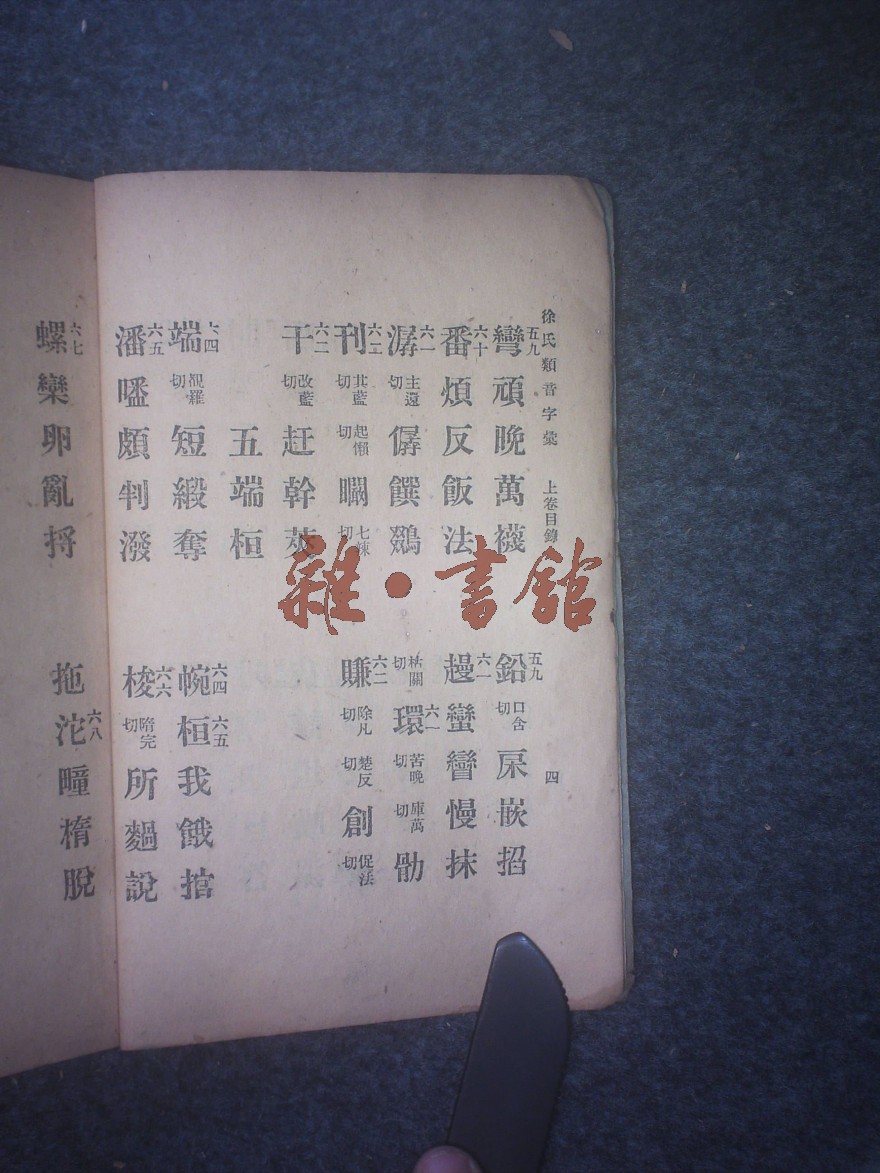 徐氏類音字彙 上卷目錄 四
五九 彎頑晚萬襪
六十 番煩反飯法
六一 潺 主還切 僝饌鵽
刊 其藍切 起懶切 七辣切
干 改藍切 赶幹
五端桓
六四 端 覩羅切 短緞奪
六五 潘 頗判潑
五九 鉛 口含切 嵌掐
六一 蠻慢抹
枯關切 六一 環 苦晚切 庫萬切
六二 賺 除凡切 楚反切 創 促法切
六四 帵 六五 桓我餓捾
六六 梭 隋完切 所說
六七 螺欒卵亂捋
拖 六八 沱疃橢脫
雜·書館